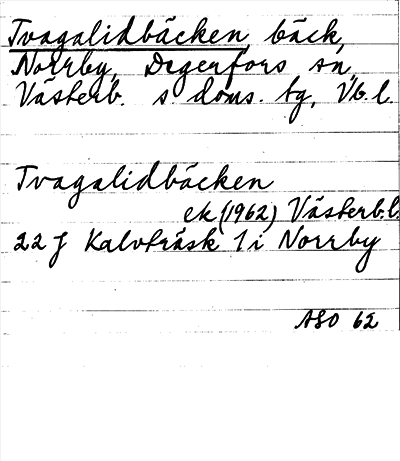 Tvagalidbäcken, bäck,
Norrby, Degerfors sn,
Västerb. s doms. tg, Vb. l.
Tvagalidbäcken
ek (1962) Västerb. l.
22 J Kalvträsk 1 i Norrby
ASO 62